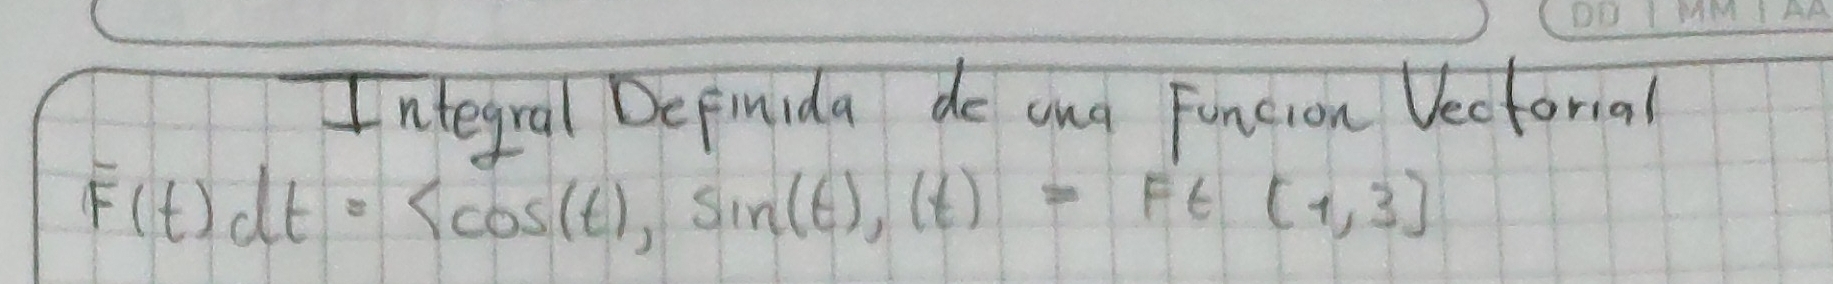 DD | MM | AA
Integral Definida de una Funcion Vectorial
F̄(t)dt = <cos(t), sin(t), (t) = Ft [1,3]